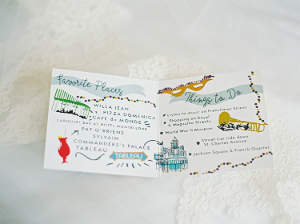 Favorite Places
WILLA JEAN
PIZZA DOMENICA
CAFE du MONDE
PAT O'BRIENS
SYLVAIN
COMMANDER'S PALACE
TABLEAU
Things to Do
Listen to music on Frenchmen Street
Shopping on Royal
& Magazine Streets
World War II Museum
Street car ride down
St. Charles Avenue
Jackson Square & French Quarter